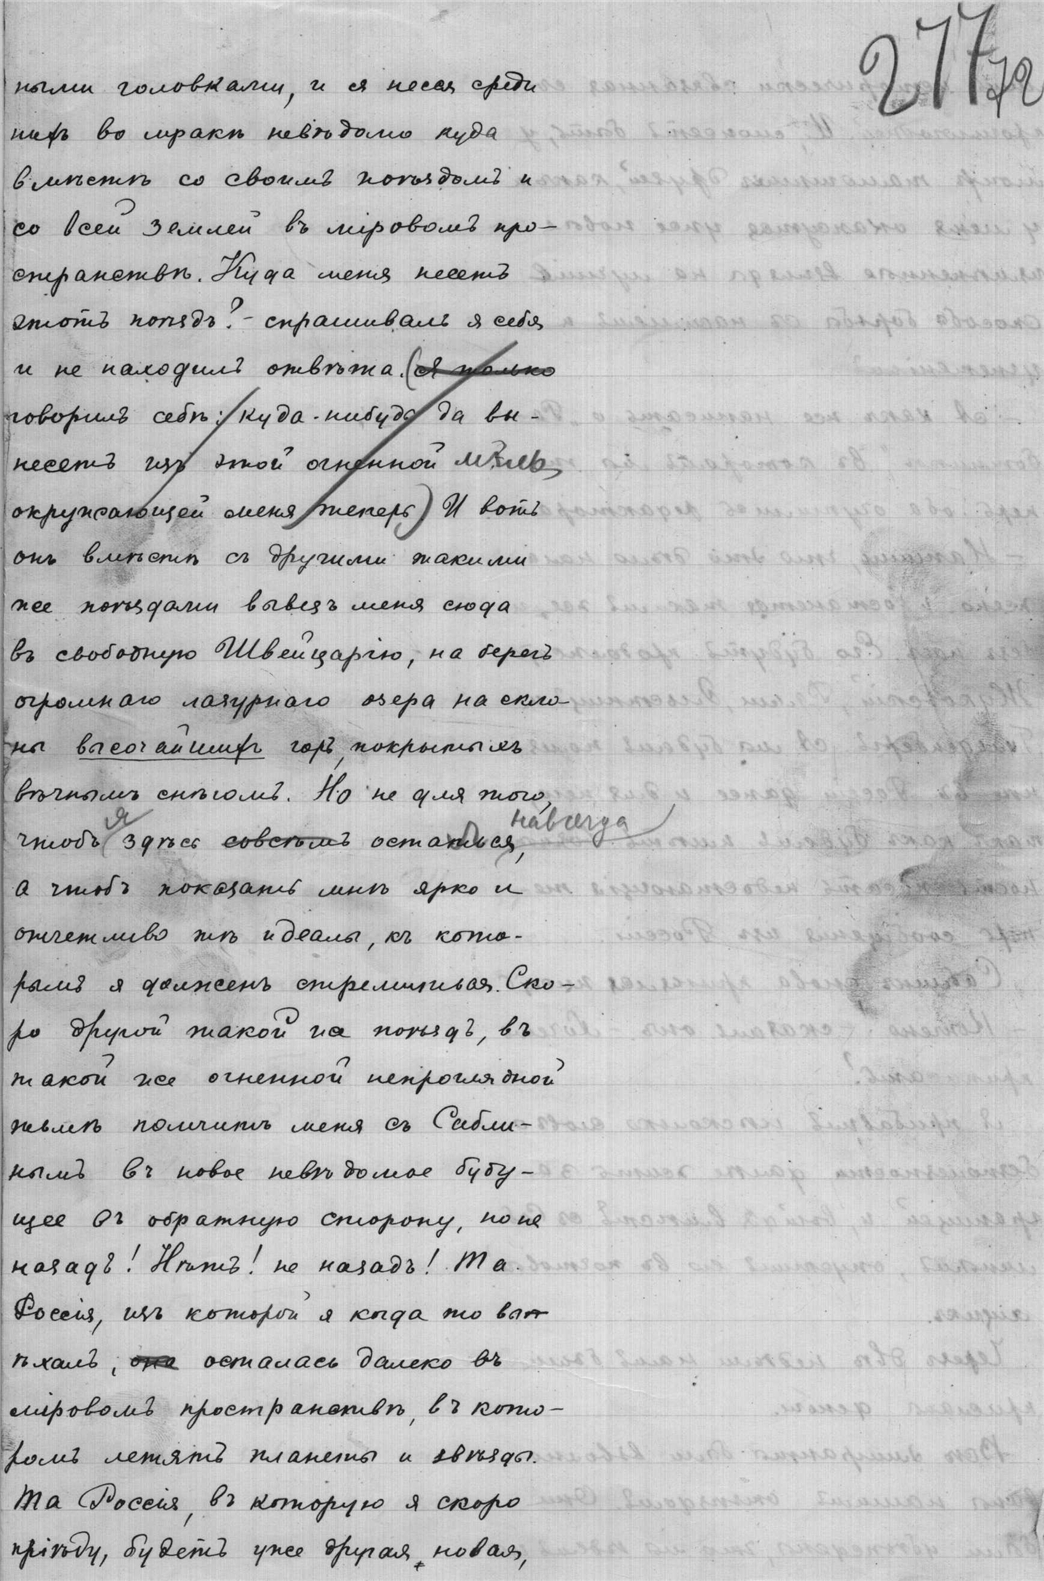 277 72
ными головками, и я несся среди
нихъ во мракѣ невѣдомо куда
вмѣстѣ со своимъ поѣздомъ и
со всей землей въ міровомъ про-
странствѣ. Куда меня несетъ
этотъ поѣздъ? - спрашивалъ я себя
и не находилъ отвѣта. (я только
говорилъ себѣ: куда-нибудь да вы-
несетъ изъ этой огненной мглы,
окружающей меня теперь) И вотъ
онъ вмѣстѣ съ другими такими
же поѣздами вывезъ меня сюда
въ свободную Швейцарію, на берегъ
огромнаго лазурнаго озера на скло-
ны высочайшихъ горъ, покрытыхъ
вѣчнымъ снѣгомъ. Но не для того,
навсегда
чтобъ я здѣсь совсѣмъ остался,
а чтобъ показать мнѣ ярко и
отчетливо тѣ идеалы, къ кото-
рымъ я долженъ стремиться. Ско-
ро другой такой же поѣздъ, въ
такой же огненной непроглядной
тьмѣ помчитъ меня съ Сабли-
нымъ въ новое невѣдомое буду-
щее въ обратную сторону, но не
назадъ! Нѣтъ! не назадъ! Та
Россія, изъ которой я когда то вы-
ѣхалъ, она осталась далеко въ
міровомъ пространствѣ, въ кото-
ромъ летятъ планеты и звѣзды.
Та Россія, въ которую я скоро
пріѣду, будетъ уже другая, новая,